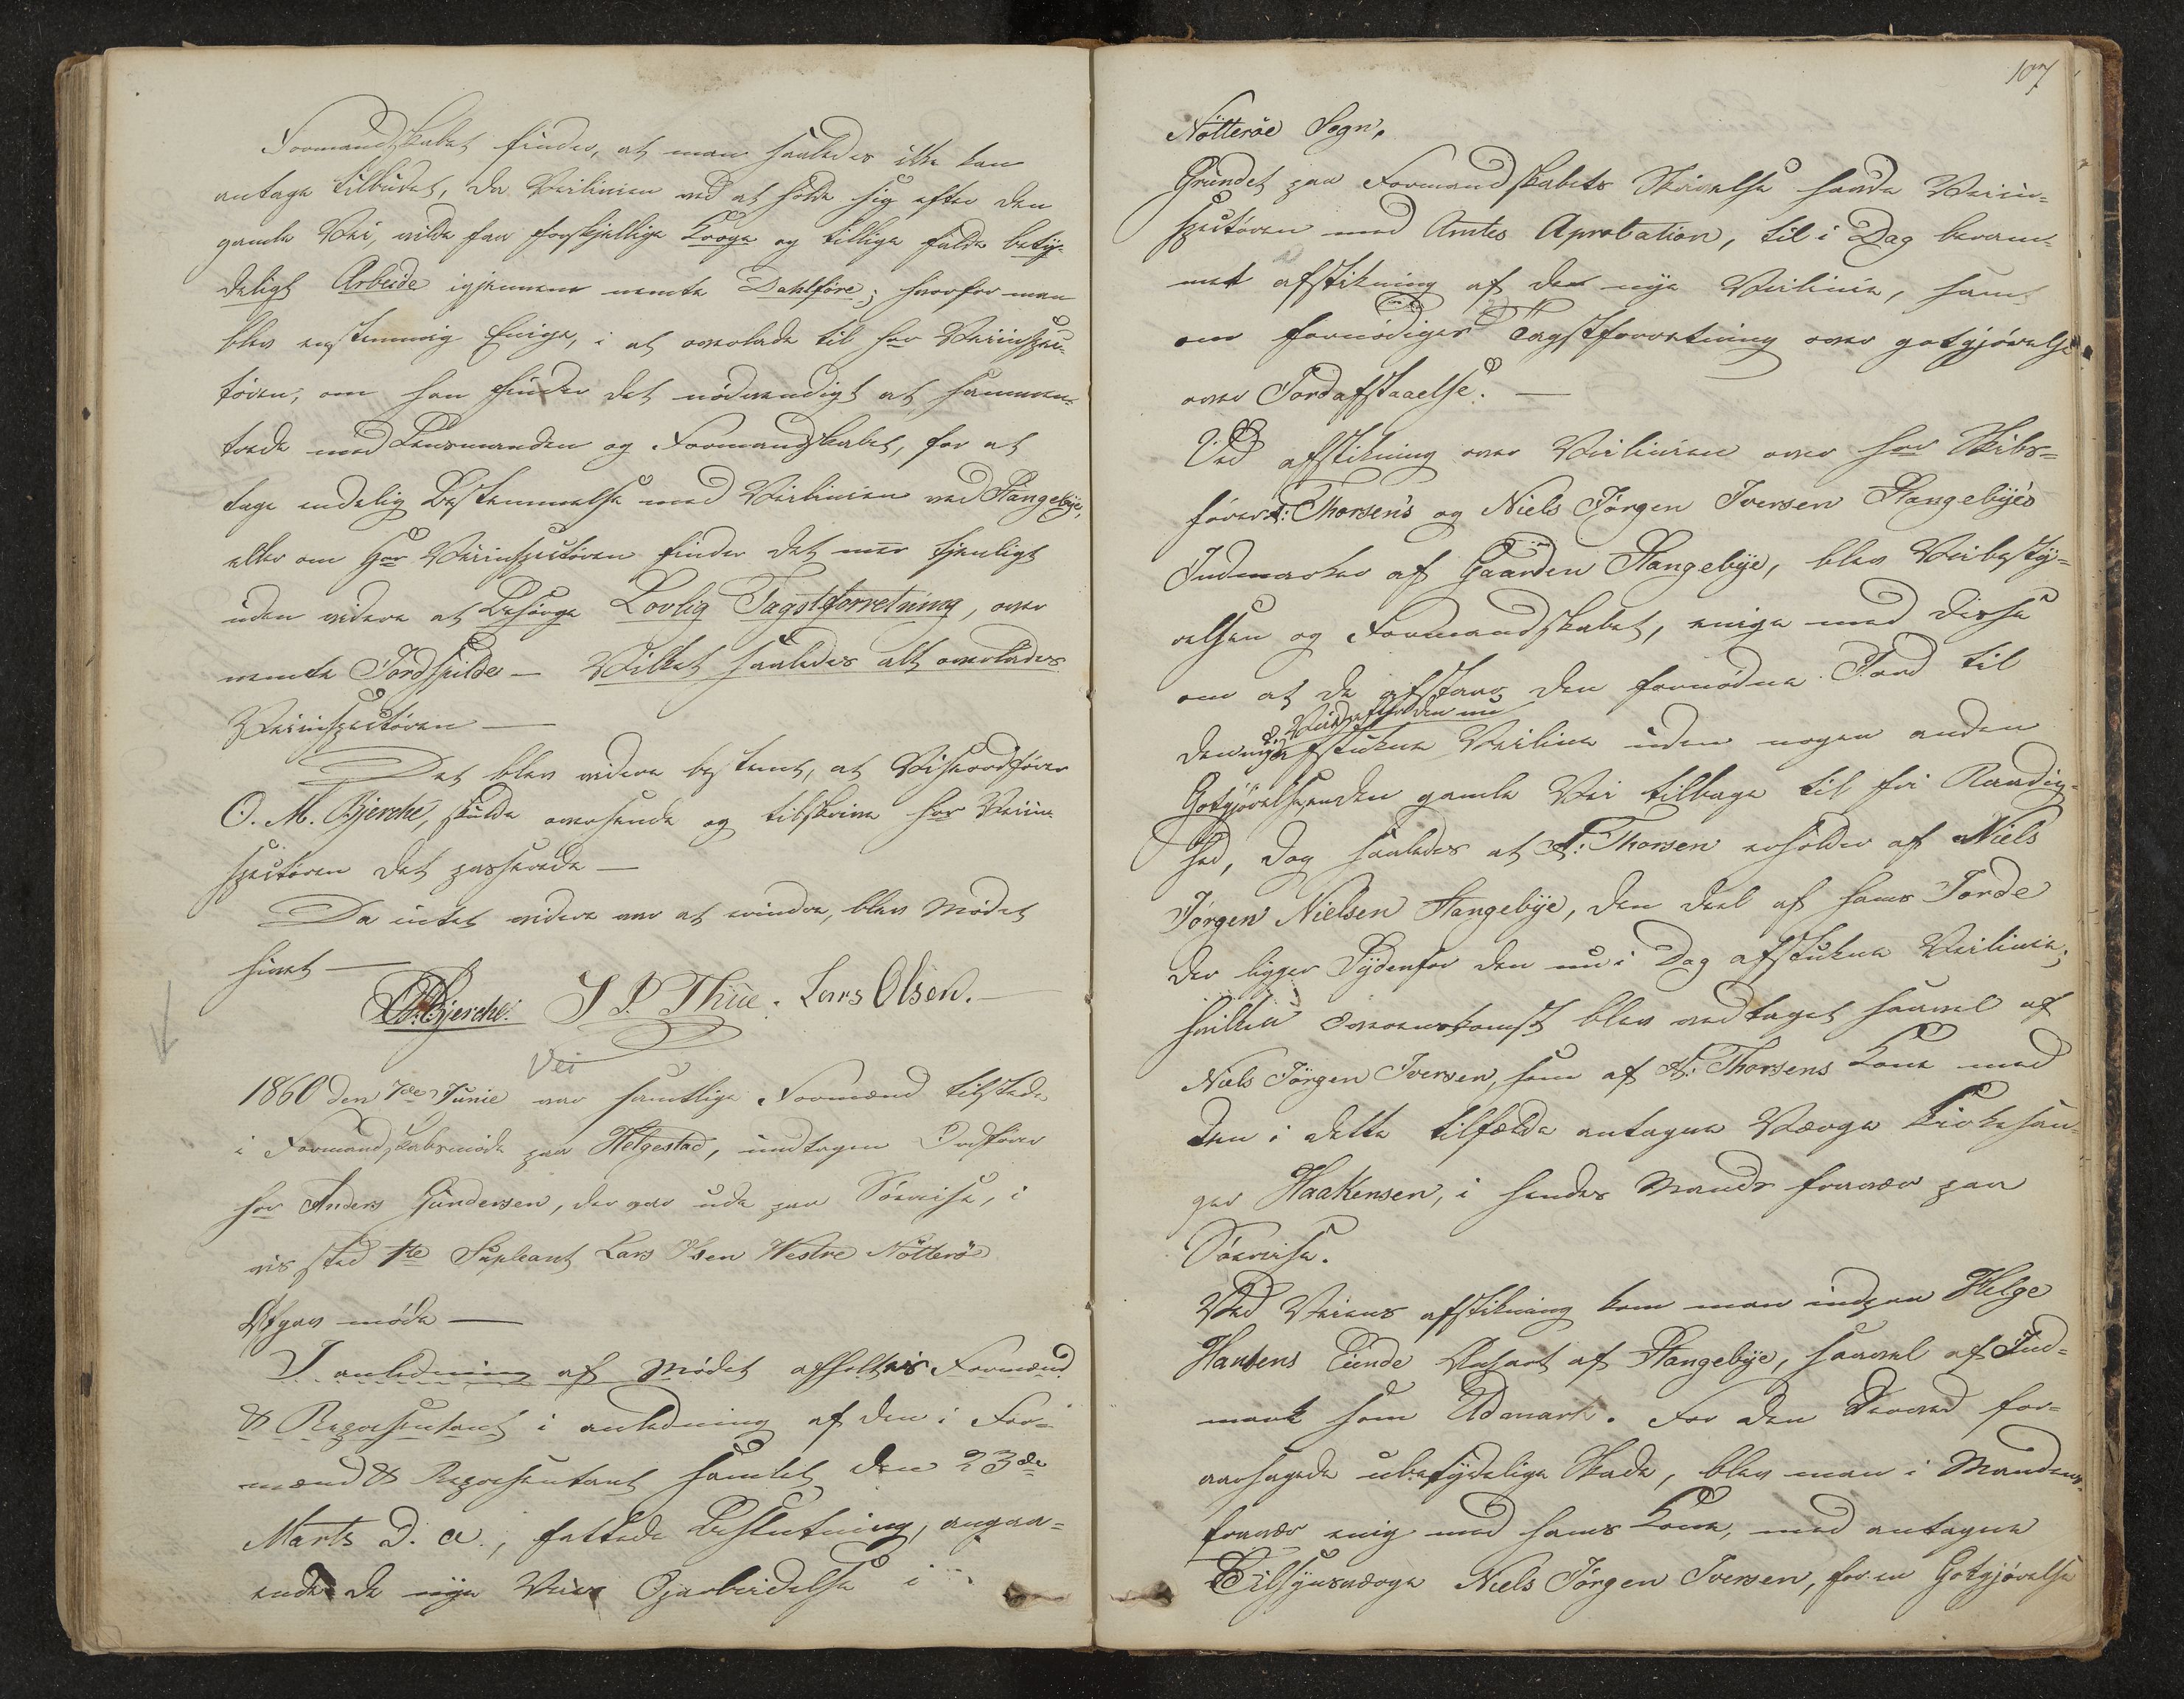 Formandskabet finder, at man saaledes ikke kan
antage tilbudet, da Veilinien ved at holde sig efter den
gamle Vei, vilde faa forskjellige Kroge og tillige fulde betÿ-
deligt Arbeide igjennem nemte Dahlföre; hvorfor man
blev enstemmig Enige, i at overlade til Hrr Veiinspec-
tören, om han finder det nödvendigt at sammen-
træde med Lensmanden og Formandskabet, for at
tage endelig Bestemmelse med Veilinien ved Stangebÿe,
eller om Hrr Veiinspectören finder det mer tjenligt
uden videre at Besörge Lovlig Tagstforretning, over
nemte Jordspilde — Vilket saaledes alt overlades
Veiinspectören —
Det blev videre bestemt, at Viseordförer
O. M. Bjerche, skulde oversende og tilskrive Hrr Veiin-
spectören det passerede —
Da intet videre var at erindre, blev Mödet
hævet —
O. M. Bjerche. J P. Thue. Lars Olsen. —
Vei
1860 den 7de Junie var samtlige Formænd tilstede
i Formandskabsmöde paa Helgestad, undtagen Ordförer
Hrr Anders Gundersen, der var ude paa Söereise, i
vis sted 1te Supleant Lars Olsen Westre Nötterö
afgav möde —
I anledning af Mödet afholtes Formænd
& Represhentant i anledning af den i For-
mænd & Represhentant samlet den 23de
Marts D. a., fattede Beslutning, angaa-
ende de nÿe Veies Oparbeidelse i
107
Nötteröe Sogn.
Grundet paa Formandskabets Skrivelse havde Veiin-
spectören med Amtes Aprobation, til i Dag beram-
met afstikning af den nye Veilinie, samt
om fornödiges Tagstforretning over gotgjörelse
over Jordafstaaelse. —
Ved afstikning over Veilinien over Hrr Skibs-
förer A: Thorsen's og Niels Jörgen Iversen Stangebÿes
Indmarker af Gaarden Stangebÿe, blev Veibestÿ-
relsen og Formandskabet, enige med disse
om at de afstaar den fornödne Jord til
Veiens efter den nu
den nye afstukne Veilinie uden nogen anden
Gotgjörelse, enden gamle Vei tilbage til fri Raadig-
hed, dog saaledes at A: Thorsen erholder af Niels
Jörgen Nielsen Stangebÿe, den deel af hans Jorde
der ligger Sÿdenfor den nu i Dag afstukne Veilinie;
hvilken overenskomst blev vedtaget saavel af
Niels Jörgen Iversen, som af A: Thorsens Kone med
den i dette tilfælde antagne Værge Kirkesan-
ger Haakensen, i hendes Mands fravær paa
Söereise.
Ved Veiens afstikning kom man indpaa Helge
Hansens Eiende Anpart af Stangebÿe, saavel af Ind-
mark som Udmark. For den derved for-
aarsagede ubetÿdelige Skade, blev man i Mandens
fravær enig med hans Kone, med antagne
Tilsÿnsværge Niels Jörgen Iversen, for en Gotgjörelse